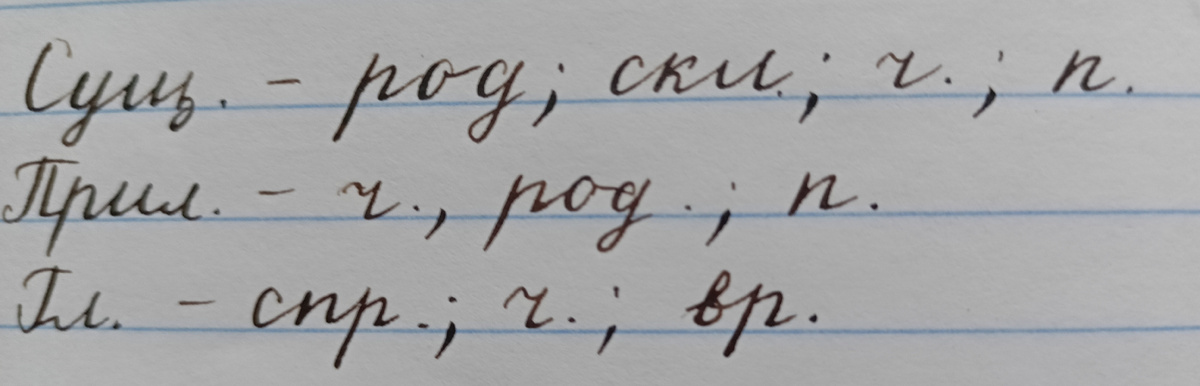 Сущ. - род; скл.; ч.; п.
Прил. - ч., род.; п.
Гл. - спр.; ч.; вр.